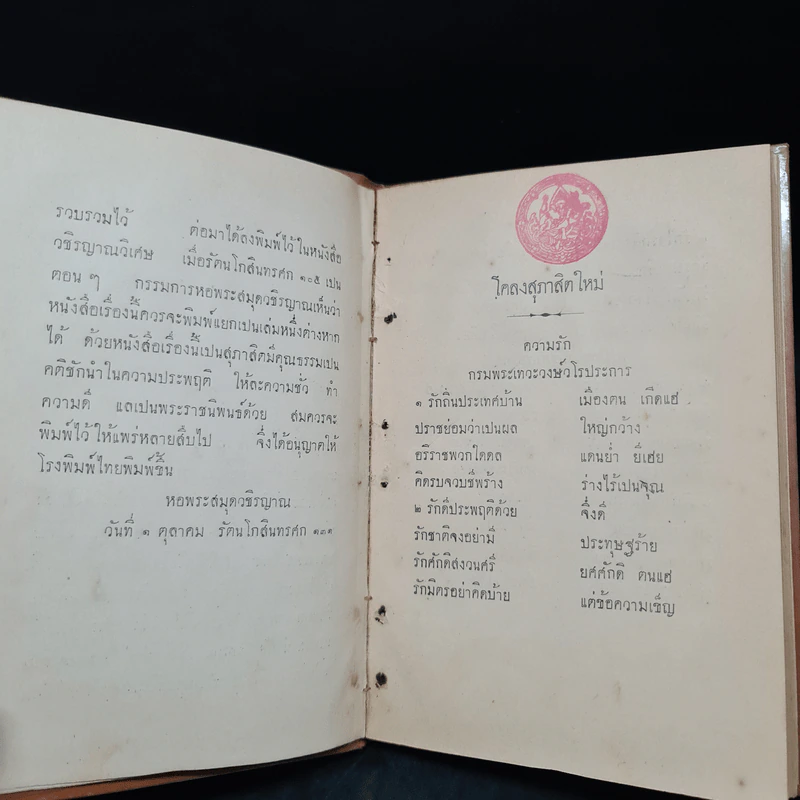 รวบรวมไว้ ต่อมาได้ลงพิมพ์ไว้ในหนังสือ
วชิรญาณวิเศษ เมื่อรัตนโกสินทรศก ๑๐๕ เปน
ตอน ๆ กรรมการหอพระสมุดวชิรญาณเห็นว่า
หนังสือเรื่องนี้ควรจะพิมพ์แยกเปนเล่มหนึ่งต่างหาก
ได้ ด้วยหนังสือเรื่องนี้เปนสุภาสิตมีคุณธรรมเปน
คติชักนำในความประพฤติ ให้ละความชั่ว ทำ
ความดี แลเปนพระราชนิพนธ์ด้วย สมควรจะ
พิมพ์ไว้ให้แพร่หลายสืบไป จึ่งได้อนุญาตให้
โรงพิมพ์ไทยพิมพ์ขึ้น
หอพระสมุดวชิรญาณ
วันที่ ๑ ตุลาคม รัตนโกสินทรศก ๑๓๑
โคลงสุภาสิตใหม่
ความรัก
กรมพระเทวะวงษ์วโรประการ
๑ รักถิ่นประเทศบ้าน เมืองตน เกิดแฮ
ปราชย่อมว่าเปนผล ใหญ่กว้าง
อริราชพวกใดดล แดนย่ำ ยีเฮย
คิดรบจวบชีพร้าง ร่างไร้เปนจุณ
๒ รักดีประพฤติด้วย จึ่งดี
รักชาติจงอย่ามี ประทุษฐร้าย
รักศักดิสงวนศรี ยศศักดิ ตนแฮ
รักมิตรอย่าคิดบ้าย แต่ข้อความเข็ญ